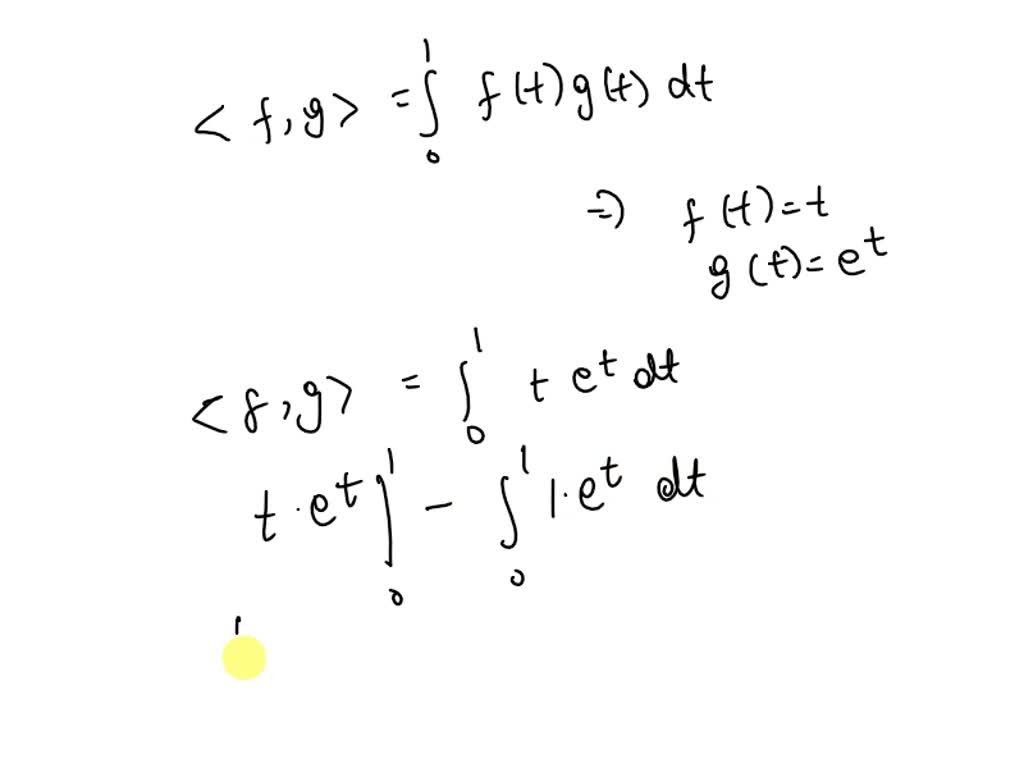 < f, g > = ∫₀¹ f(t) g(t) dt
=> f(t) = t
g(t) = e^t
< f, g > = ∫₀¹ t e^t dt
t · e^t ]₀¹ - ∫₀¹ 1 · e^t dt
1